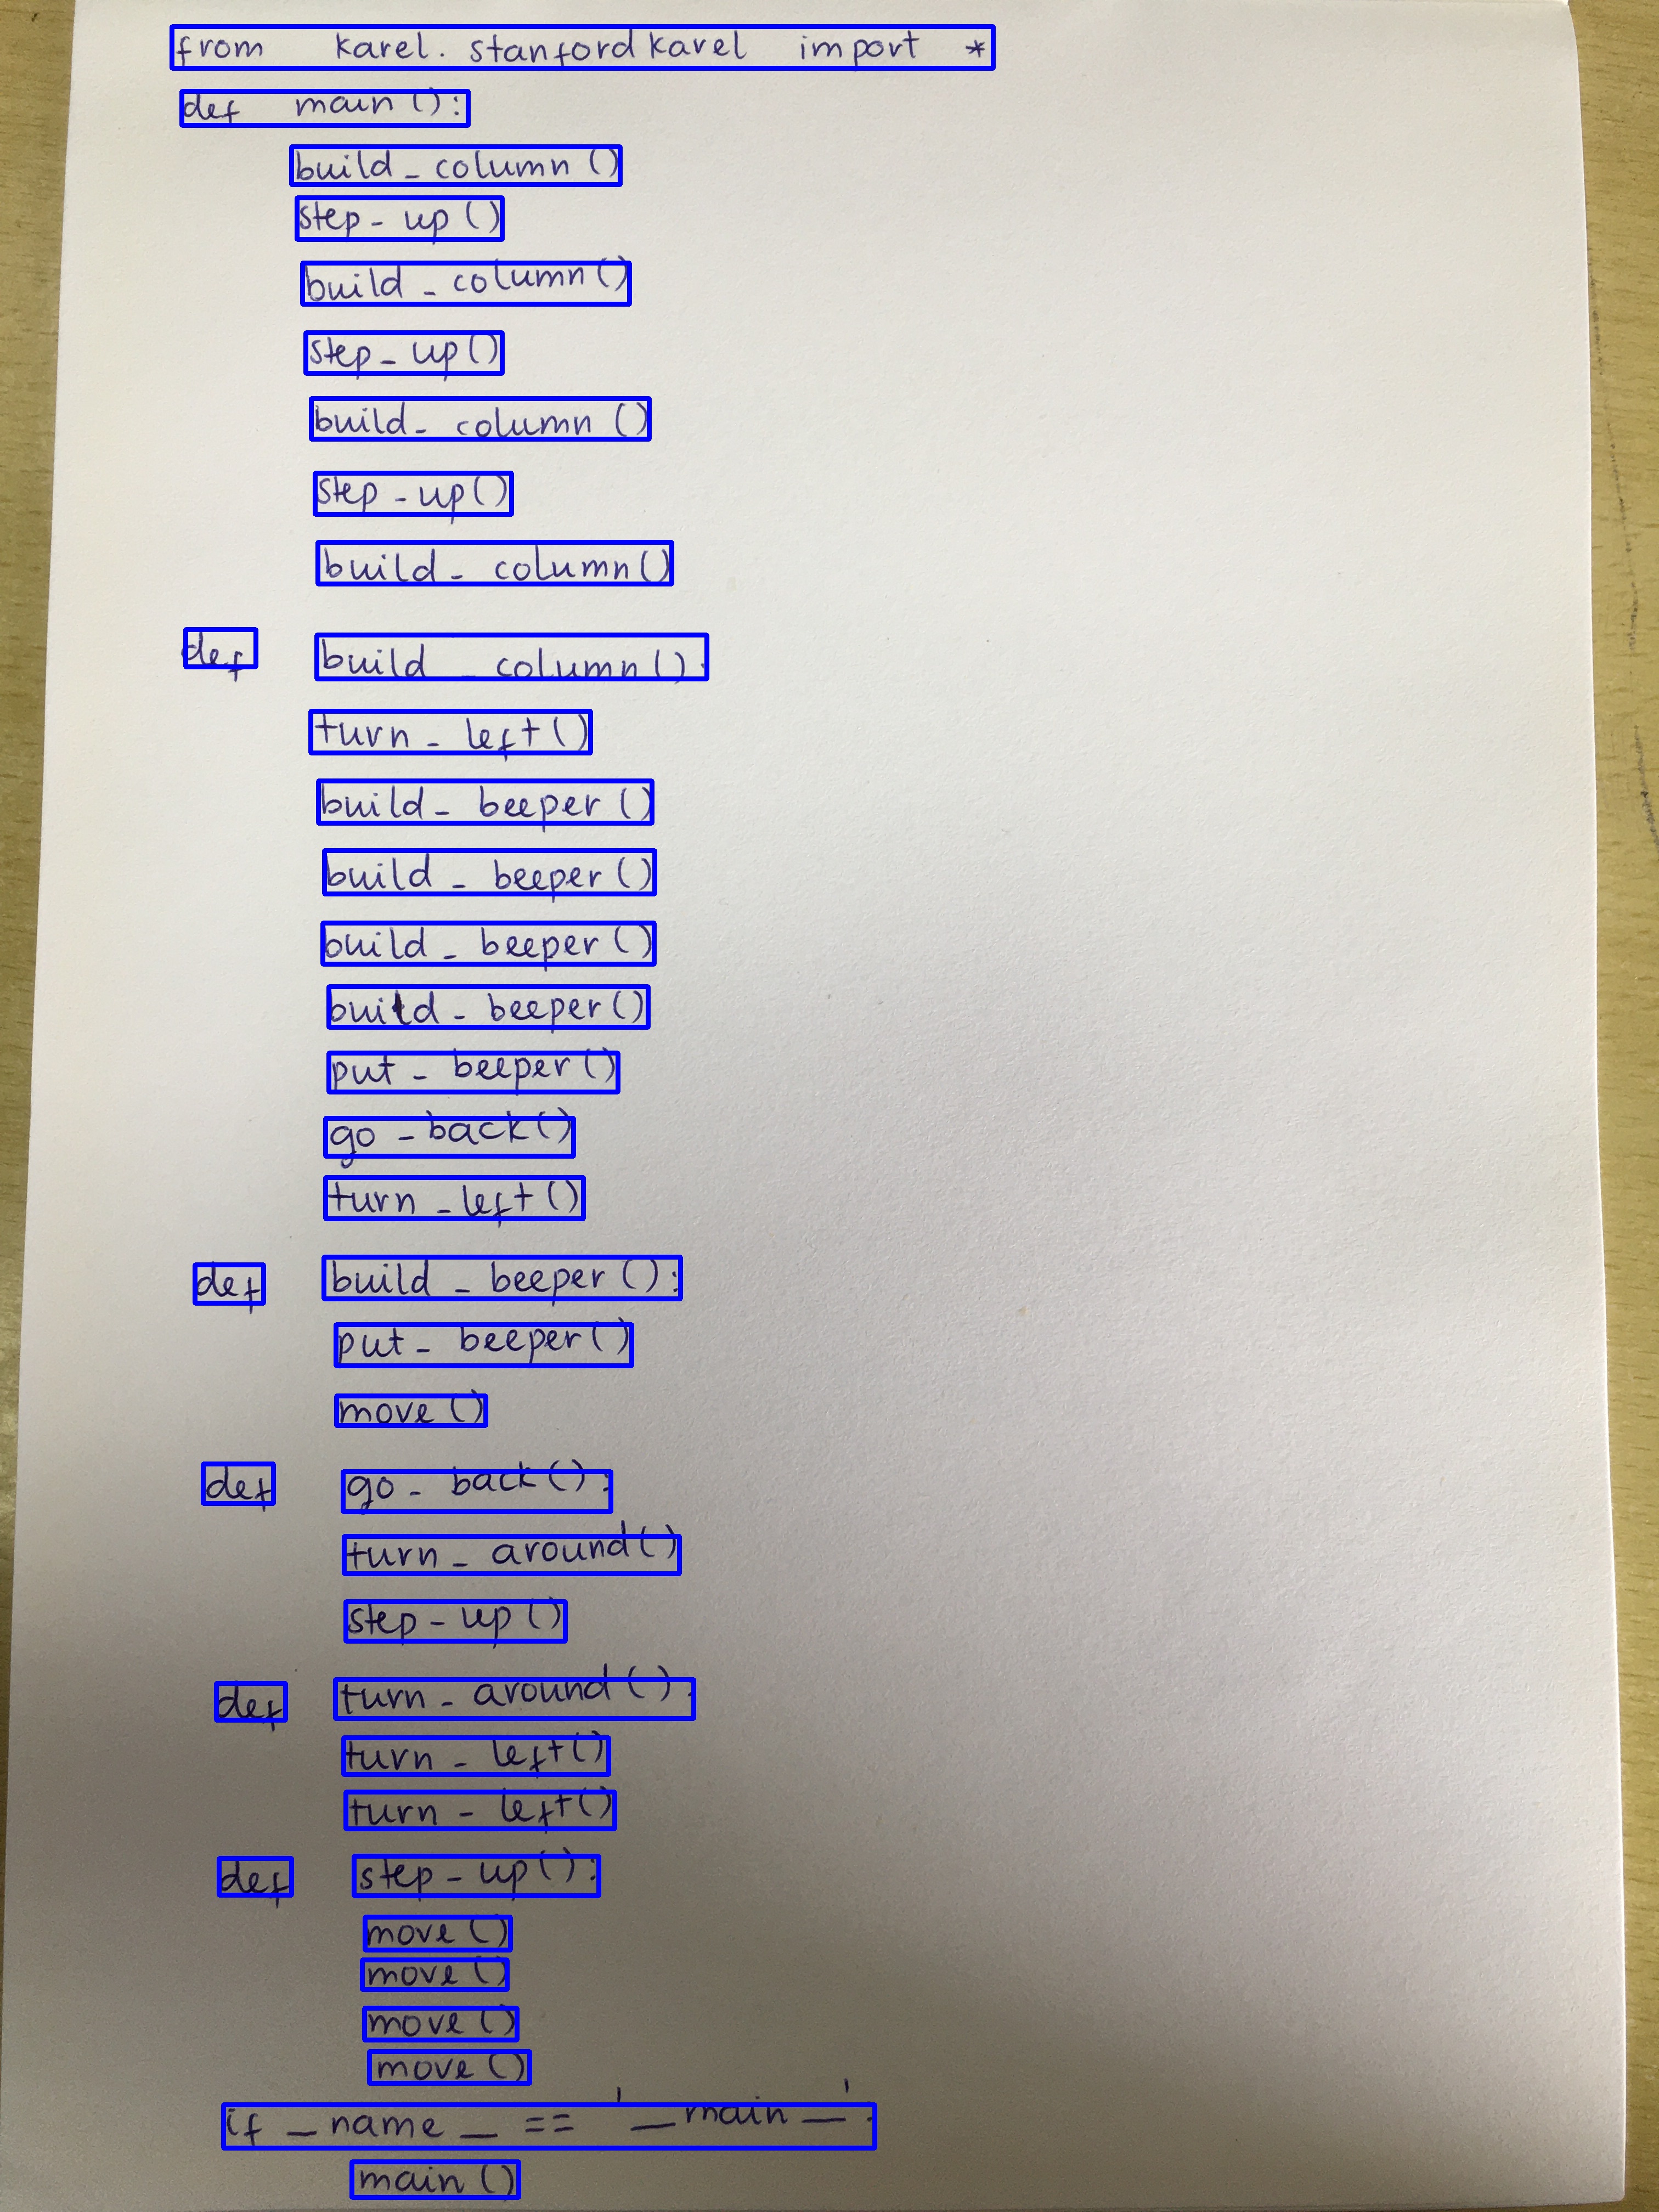 from karel.stanfordkarel import *
def main():
    build_column()
    step_up()
    build_column()
    step_up()
    build_column()
    step_up()
    build_column()
def build_column():
    turn_left()
    build_beeper()
    build_beeper()
    build_beeper()
    build_beeper()
    put_beeper()
    go_back()
    turn_left()
def build_beeper():
    put_beeper()
    move()
def go_back():
    turn_around()
    step_up()
def turn_around():
    turn_left()
    turn_left()
def step_up():
    move()
    move()
    move()
    move()
if _name_ == '_main_':
    main()